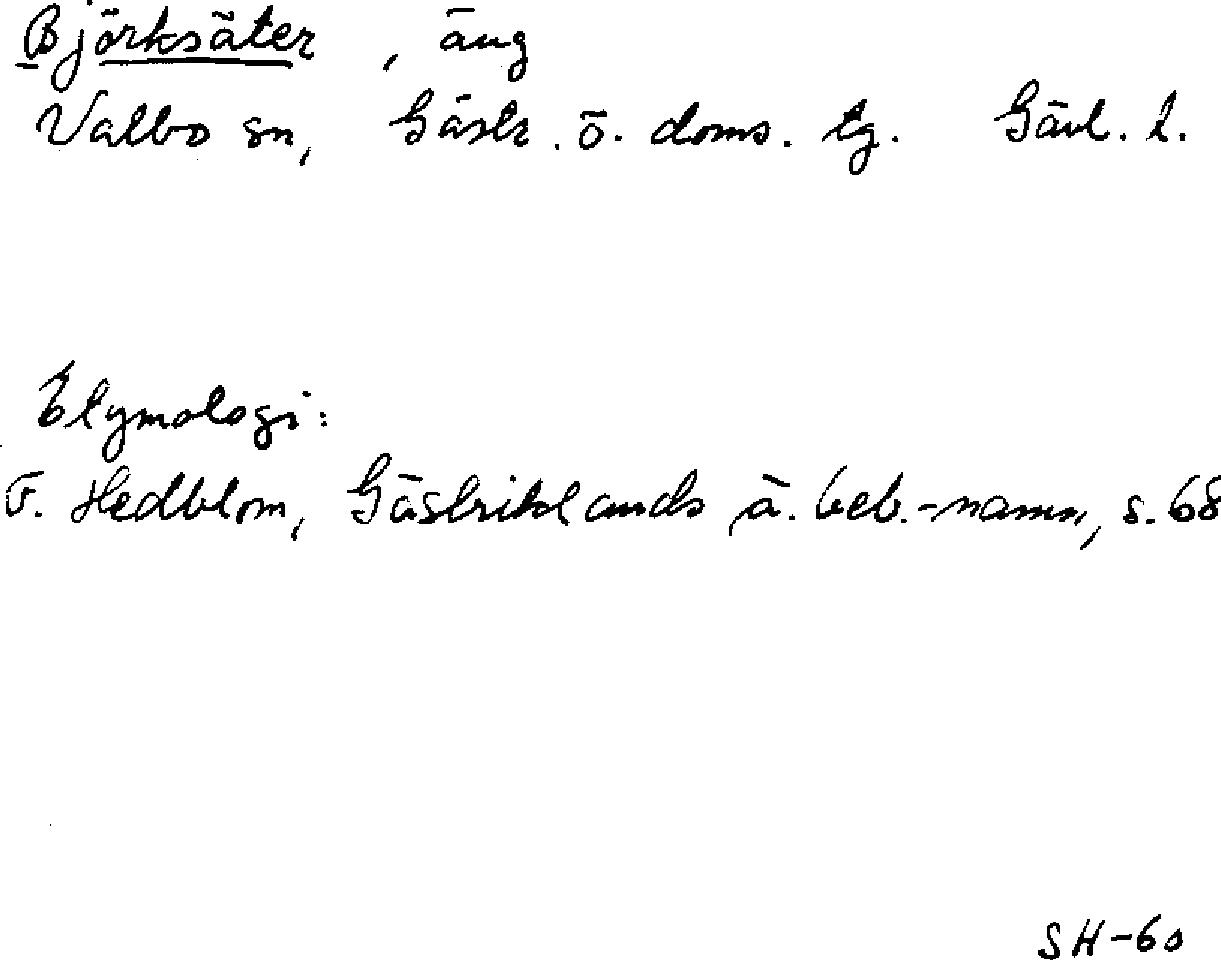 Björksäter, äng
Valbo sn, Gästr. ö. doms. tg. Gävl. l.
Etymologi:
F. Hedblom, Gästriklands ä. beb.-namn, s. 68
SH-60